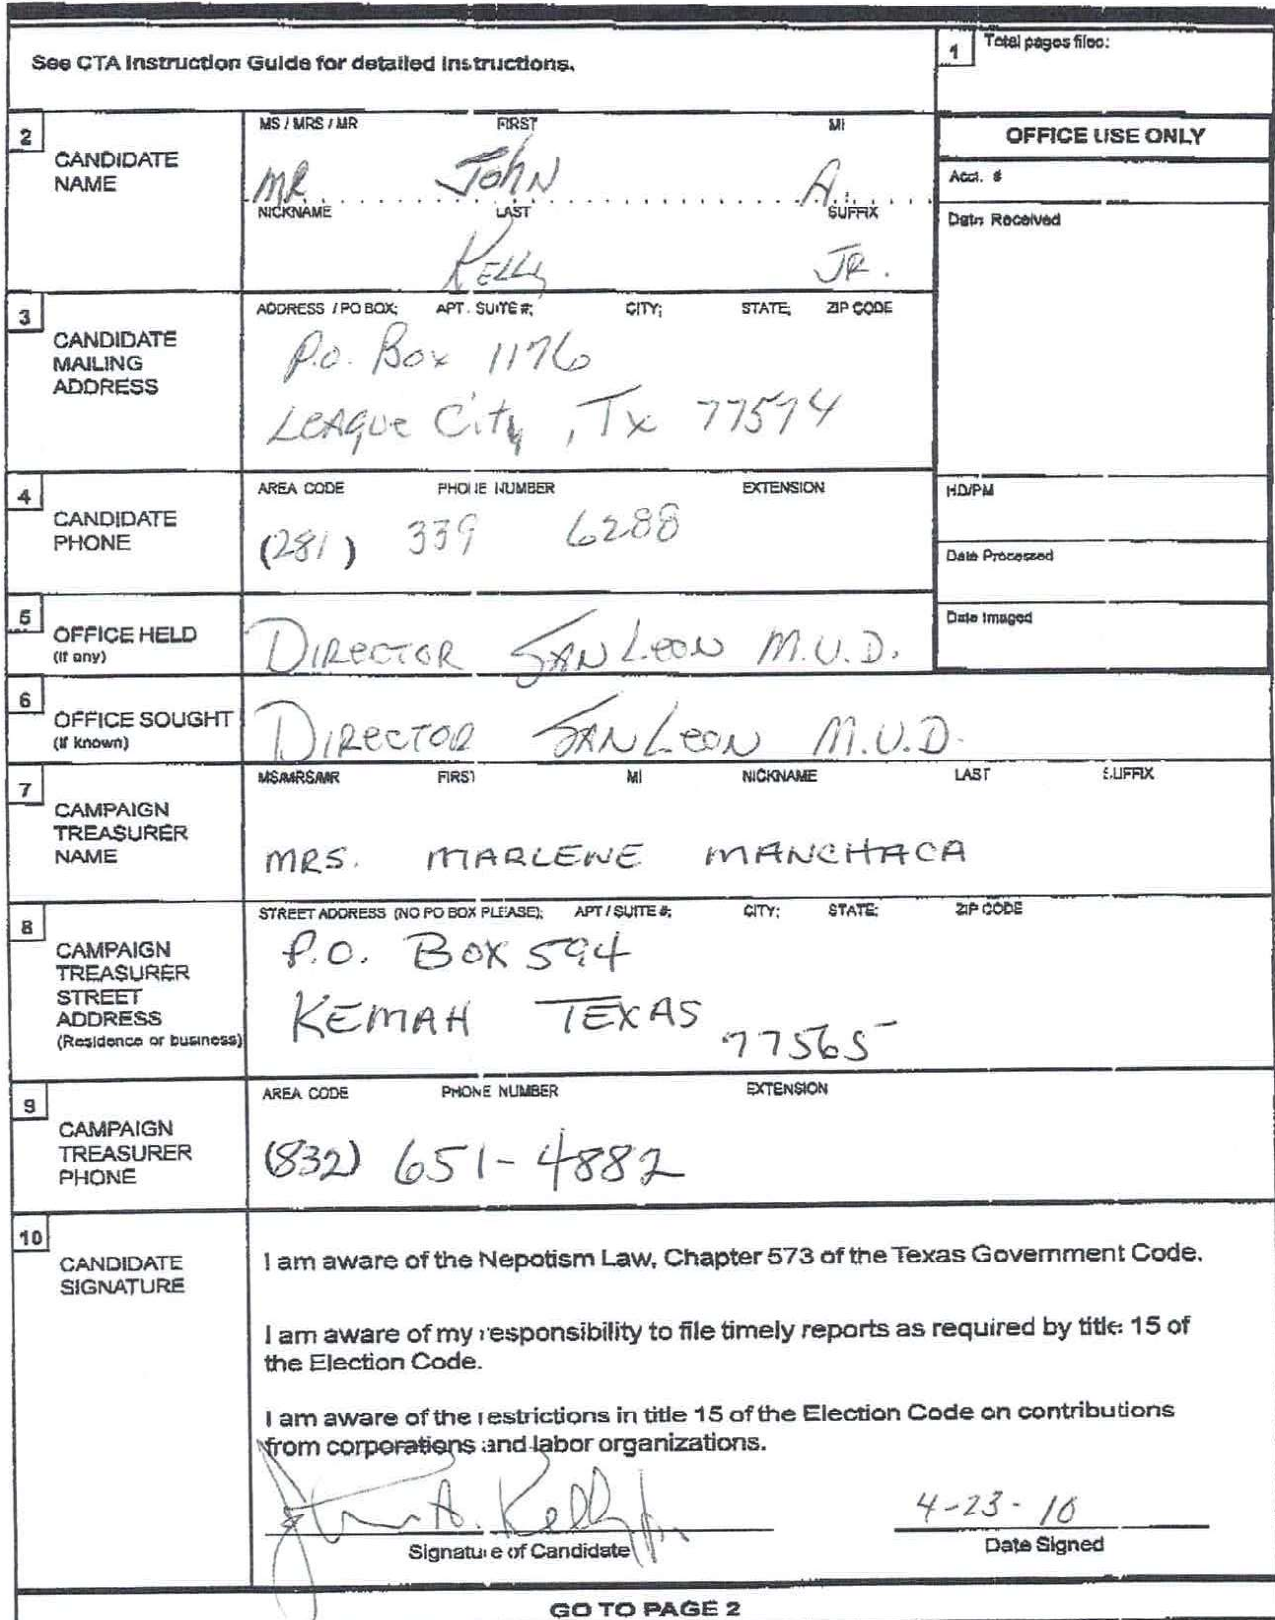 See CTA Instruction Guide for detailed instructions.
1 Total pages filed:
2 CANDIDATE NAME
MS / MRS / MR FIRST MI
MR John A.
NICKNAME LAST SUFFIX
Kelly JR.
OFFICE USE ONLY
Acct. #
Date Received
3 CANDIDATE MAILING ADDRESS
ADDRESS / PO BOX; APT. SUITE #; CITY; STATE; ZIP CODE
P.O. Box 1176
League City, Tx 77574
4 CANDIDATE PHONE
AREA CODE PHONE NUMBER EXTENSION
(281) 339 6288
HD/PM
Date Processed
Date Imaged
5 OFFICE HELD
(if any)
DIRECTOR SAN LEON M.U.D.
6 OFFICE SOUGHT
(if known)
DIRECTOR SAN LEON M.U.D.
7 CAMPAIGN TREASURER NAME
MS/MRS/MR FIRST MI NICKNAME LAST SUFFIX
MRS. MARLENE MANCHACA
8 CAMPAIGN TREASURER STREET ADDRESS
(Residence or business)
STREET ADDRESS (NO PO BOX PLEASE); APT / SUITE #; CITY; STATE; ZIP CODE
P.O. BOX 594
KEMAH TEXAS
77565
9 CAMPAIGN TREASURER PHONE
AREA CODE PHONE NUMBER EXTENSION
(832) 651-4882
10 CANDIDATE SIGNATURE
I am aware of the Nepotism Law, Chapter 573 of the Texas Government Code.
I am aware of my responsibility to file timely reports as required by title 15 of
the Election Code.
I am aware of the restrictions in title 15 of the Election Code on contributions
from corporations and labor organizations.
John A. Kelly Jr.
4-23-10
Signature of Candidate
Date Signed
GO TO PAGE 2